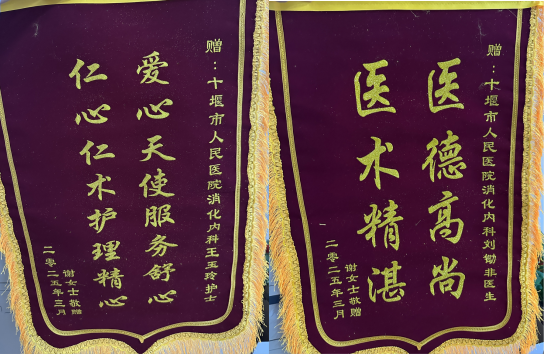 赠：十堰市人民医院消化内科王玉玲护士
爱心天使服务舒心
仁心仁术护理精心
谢女士敬赠
二零二五年三月
赠：十堰市人民医院消化内科刘锄非医生
医德高尚
医术精湛
谢女士敬赠
二零二五年三月